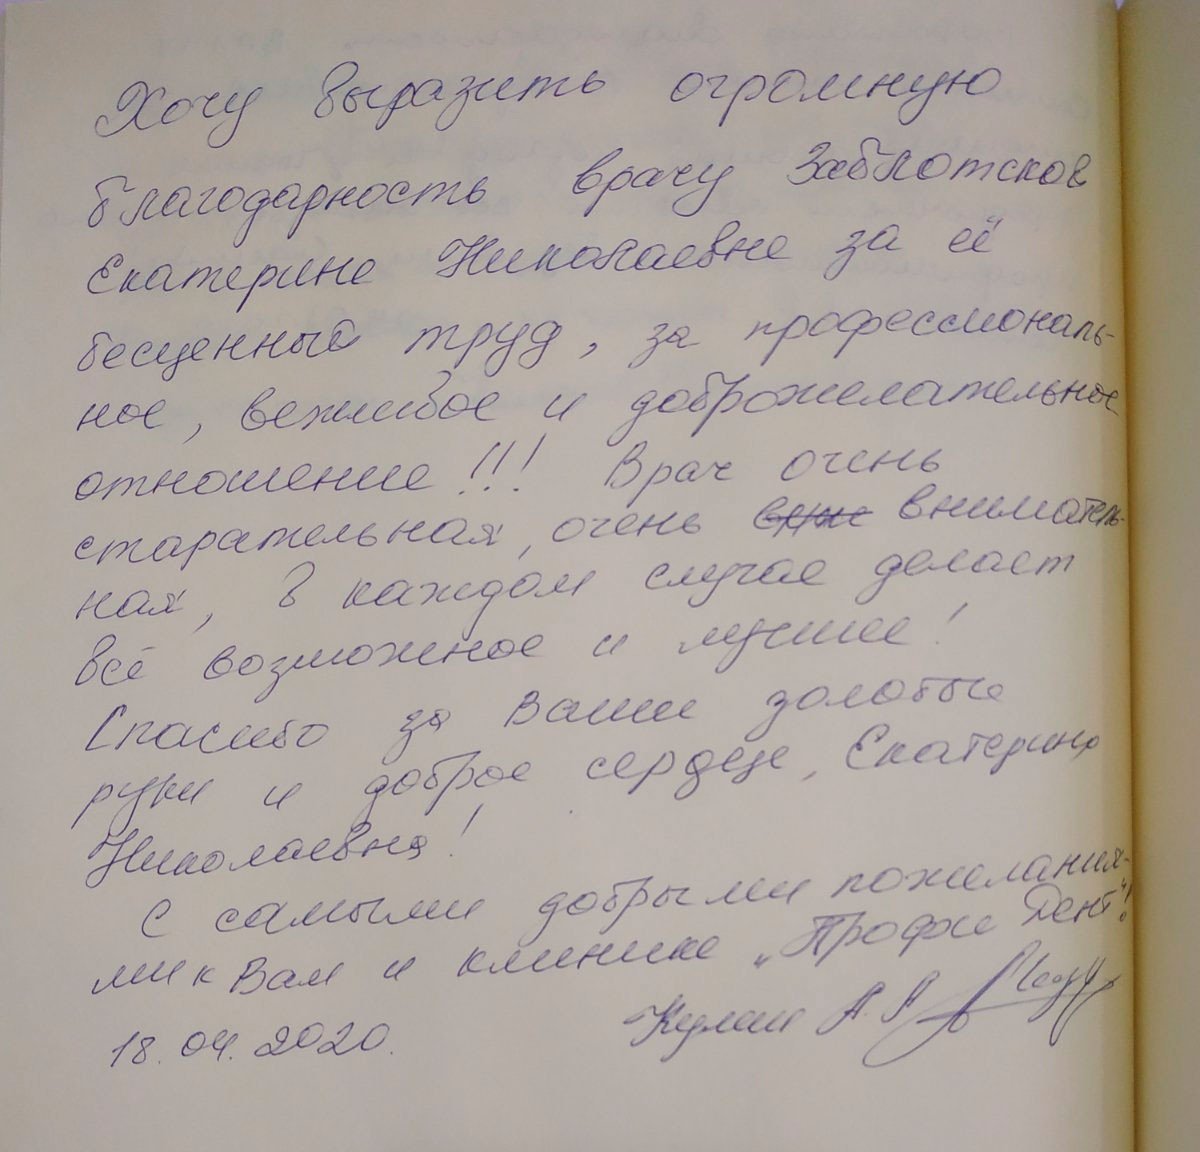 Хочу выразить огромную
благодарность врачу Заблотской
Екатерине Николаевне за её
бесценный труд, за профессиональ-
ное, вежливое и доброжелательное
отношение!!! Врач очень
старательная, очень вниматель-
ная, в каждом случае делает
всё возможное и лучшее!
Спасибо за Ваши золотые
руки и доброе сердце, Екатерина
Николаевна!
С самыми добрыми пожелания-
ми к Вам и клинике „Профи Дент"!
18.04.2020.